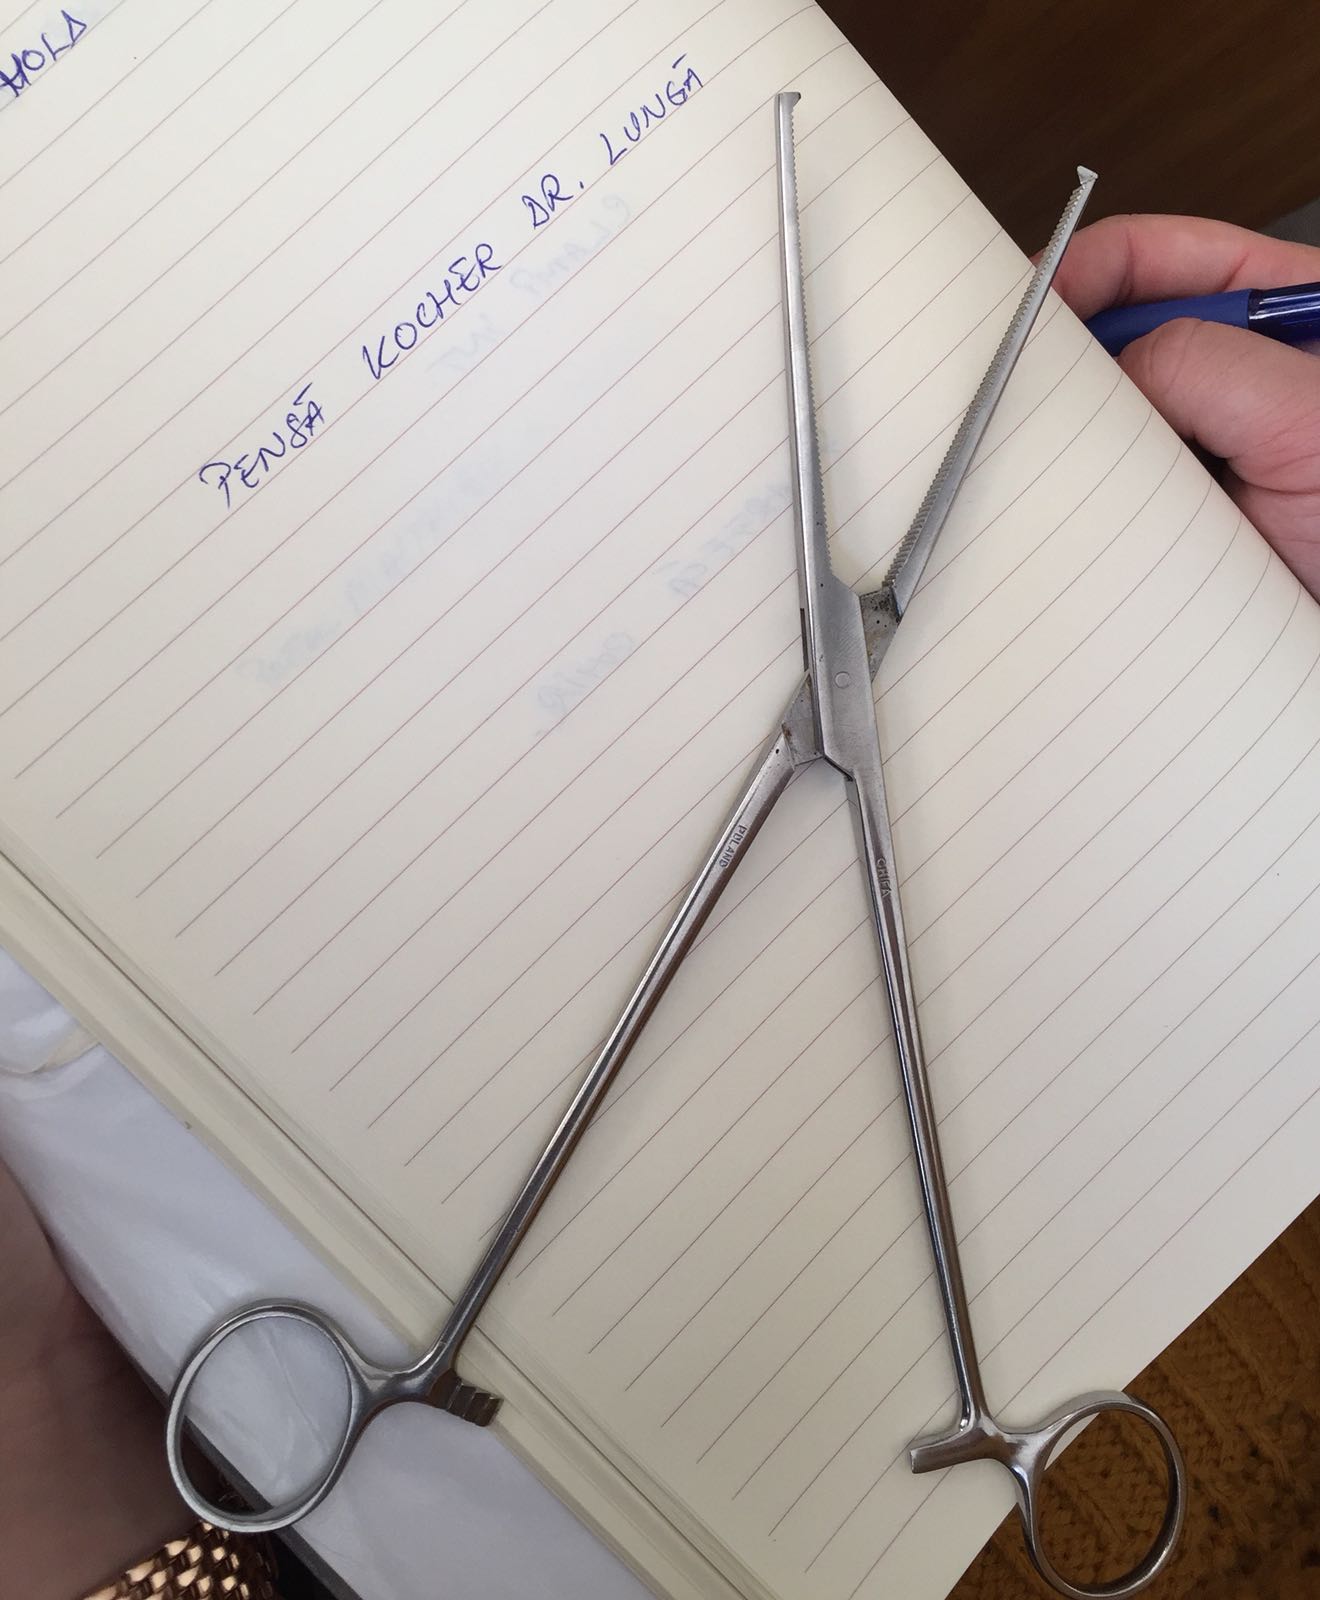 HOLD
PENSĂ KOCHER DR. LUNGĂ
POLAND
CHIFA